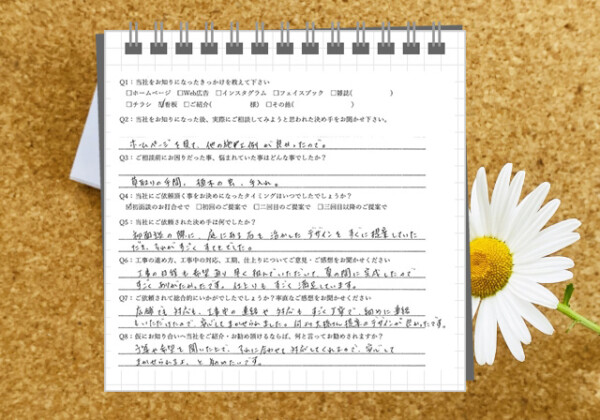 Q1：当社をお知りになったきっかけを教えて下さい
□ホームページ □Web広告 □インスタグラム □フェイスブック □雑誌( )
□チラシ ☑看板 □ご紹介( 様) □その他( )
Q2：当社をお知りになった後、実際にご相談してみようと思われた決め手をお聞かせ下さい。
ホームページを見て、他の施工例が良かったので。
Q3：ご相談前にお困りだった事、悩まれていた事はどんな事でしたか？
草取りの手間、植木の虫、手入れ。
Q4：当社にご依頼頂く事をお決めになったタイミングはいつでしたでしょうか？
☑初面談のお打合せで □初回のご提案で □二回目のご提案で □三回目以降のご提案で
Q5：当社にご依頼された決め手は何でしたか？
初面談の際に、庭にある石も活かしたデザインをすぐに提案していた
だき、それがすごく すてきでした。
Q6：工事の進め方、工事中の対応、工期、仕上りについてご意見・ご感想をお聞かせください
工事の日時も希望通り早く組んでいただいて、夏の間に完成したので
すごくありがたかったです。仕上りもすごく満足しています。
Q7：ご依頼されて総合的にいかがでしたでしょうか？率直なご感想をお聞かせください
店舗でも対応も、工事中の連絡や対応もすごく丁寧で、細めに連絡
もいただけたので、安心してまかせられました。何より大橋さん提案のデザインが良かったです。
Q8：仮にお知り合いへ当社をご紹介・お勧め頂けるならば、何と言ってお勧めされますか？
予算や希望を聞いた上で、それに合わせた対応してくれるので、安心して
まかせられるよ、と勧めたいです。